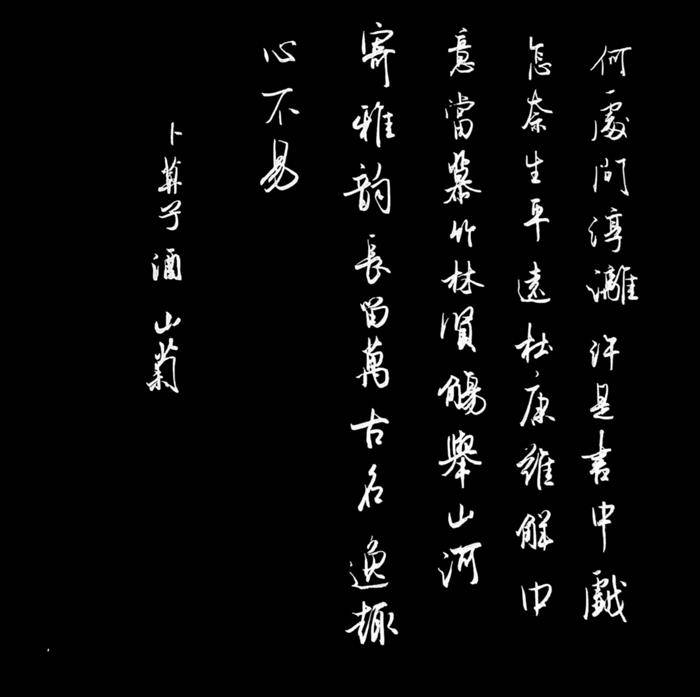 何處问淳漓许是書中戲
怎奈生平遠杜康難解中
意當慕竹林賢觴舉山河
寄雅韵長留萬古名逸趣
心不易
卜算子酒山菊